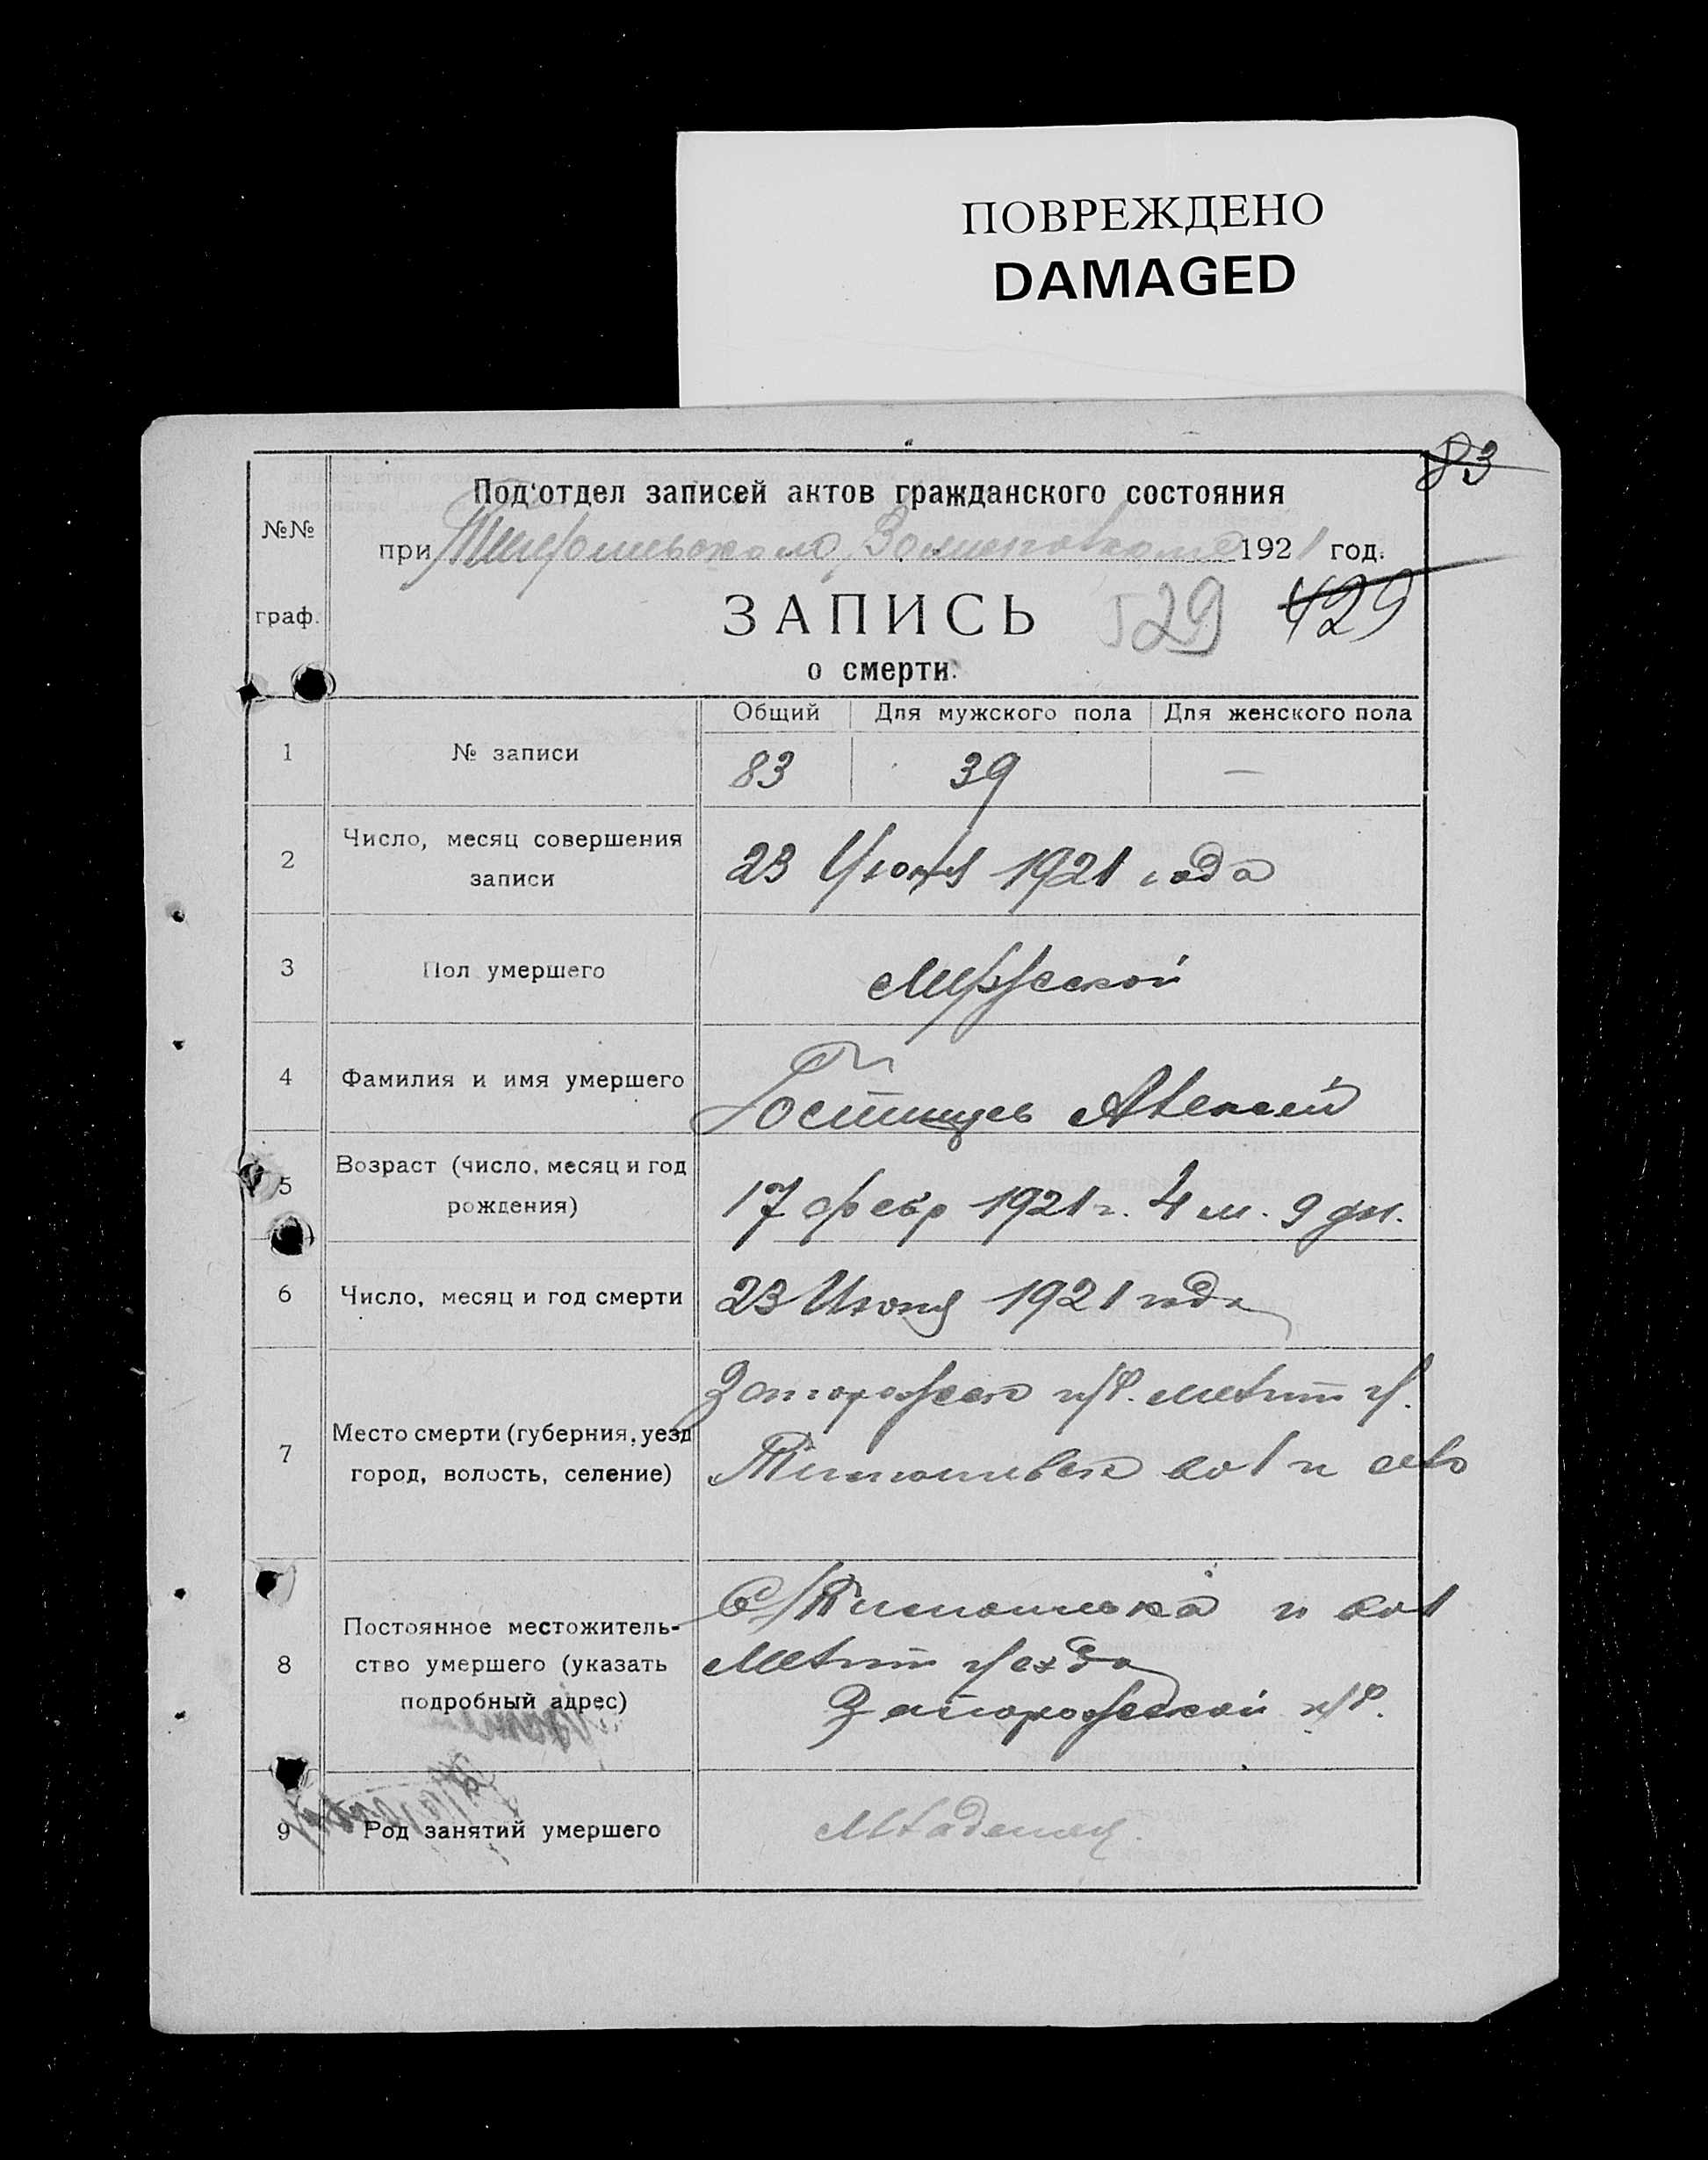 ПОВРЕЖДЕНО
DAMAGED
83
Под'отдел записей актов гражданского состояния
№№ граф.
при 1921 год.
ЗАПИСЬ 529 429
о смерти.
Общий Для мужского пола Для женского пола
1 № записи 83 39 —
2 Число, месяц совершения
записи
23 Июня 1921 года
3 Пол умершего Мужской
4 Фамилия и имя умершего Алексей
5 Возраст (число, месяц и год
рождения)
17 февр 1921 г. 4 м. 9 дн.
6 Число, месяц и год смерти 23 Июня 1921 года
7 Место смерти (губерния, уезд
город, волость, селение)
Запорожск губ. Мелит у.
вол и село
8 Постоянное местожитель-
ство умершего (указать
подробный адрес)
С/ и вол
Мелит уезда
Запорожской губ.
9 Род занятий умершего Младенец.